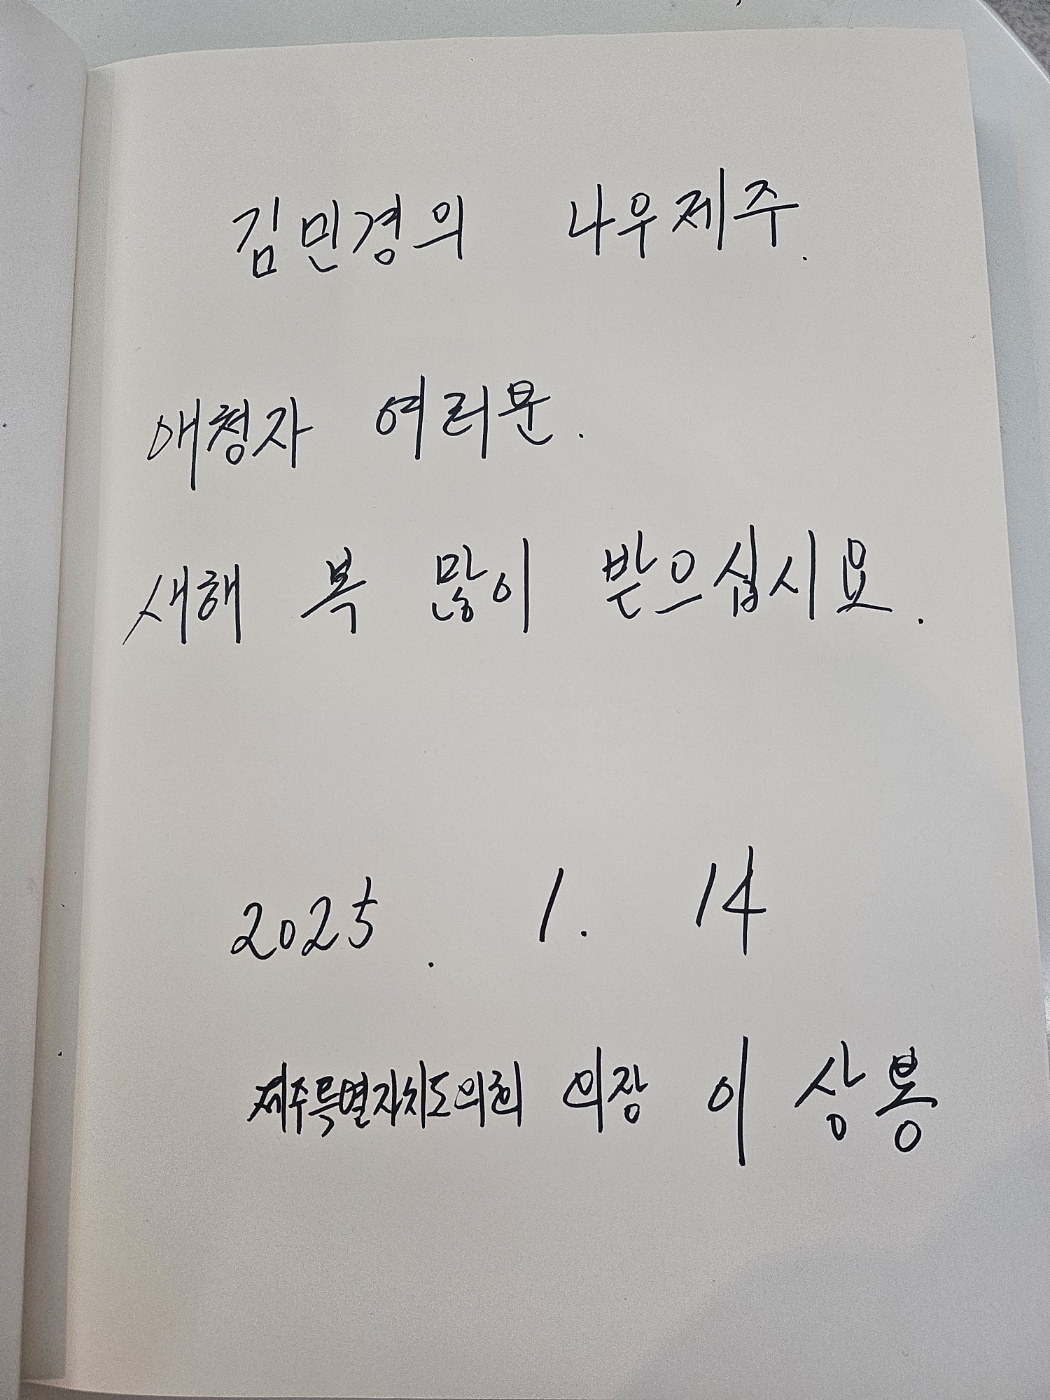 김민경의 나우제주.
애청자 여러분.
새해 복 많이 받으십시요.
2025. 1. 14
제주특별자치도의회 의장 이상봉